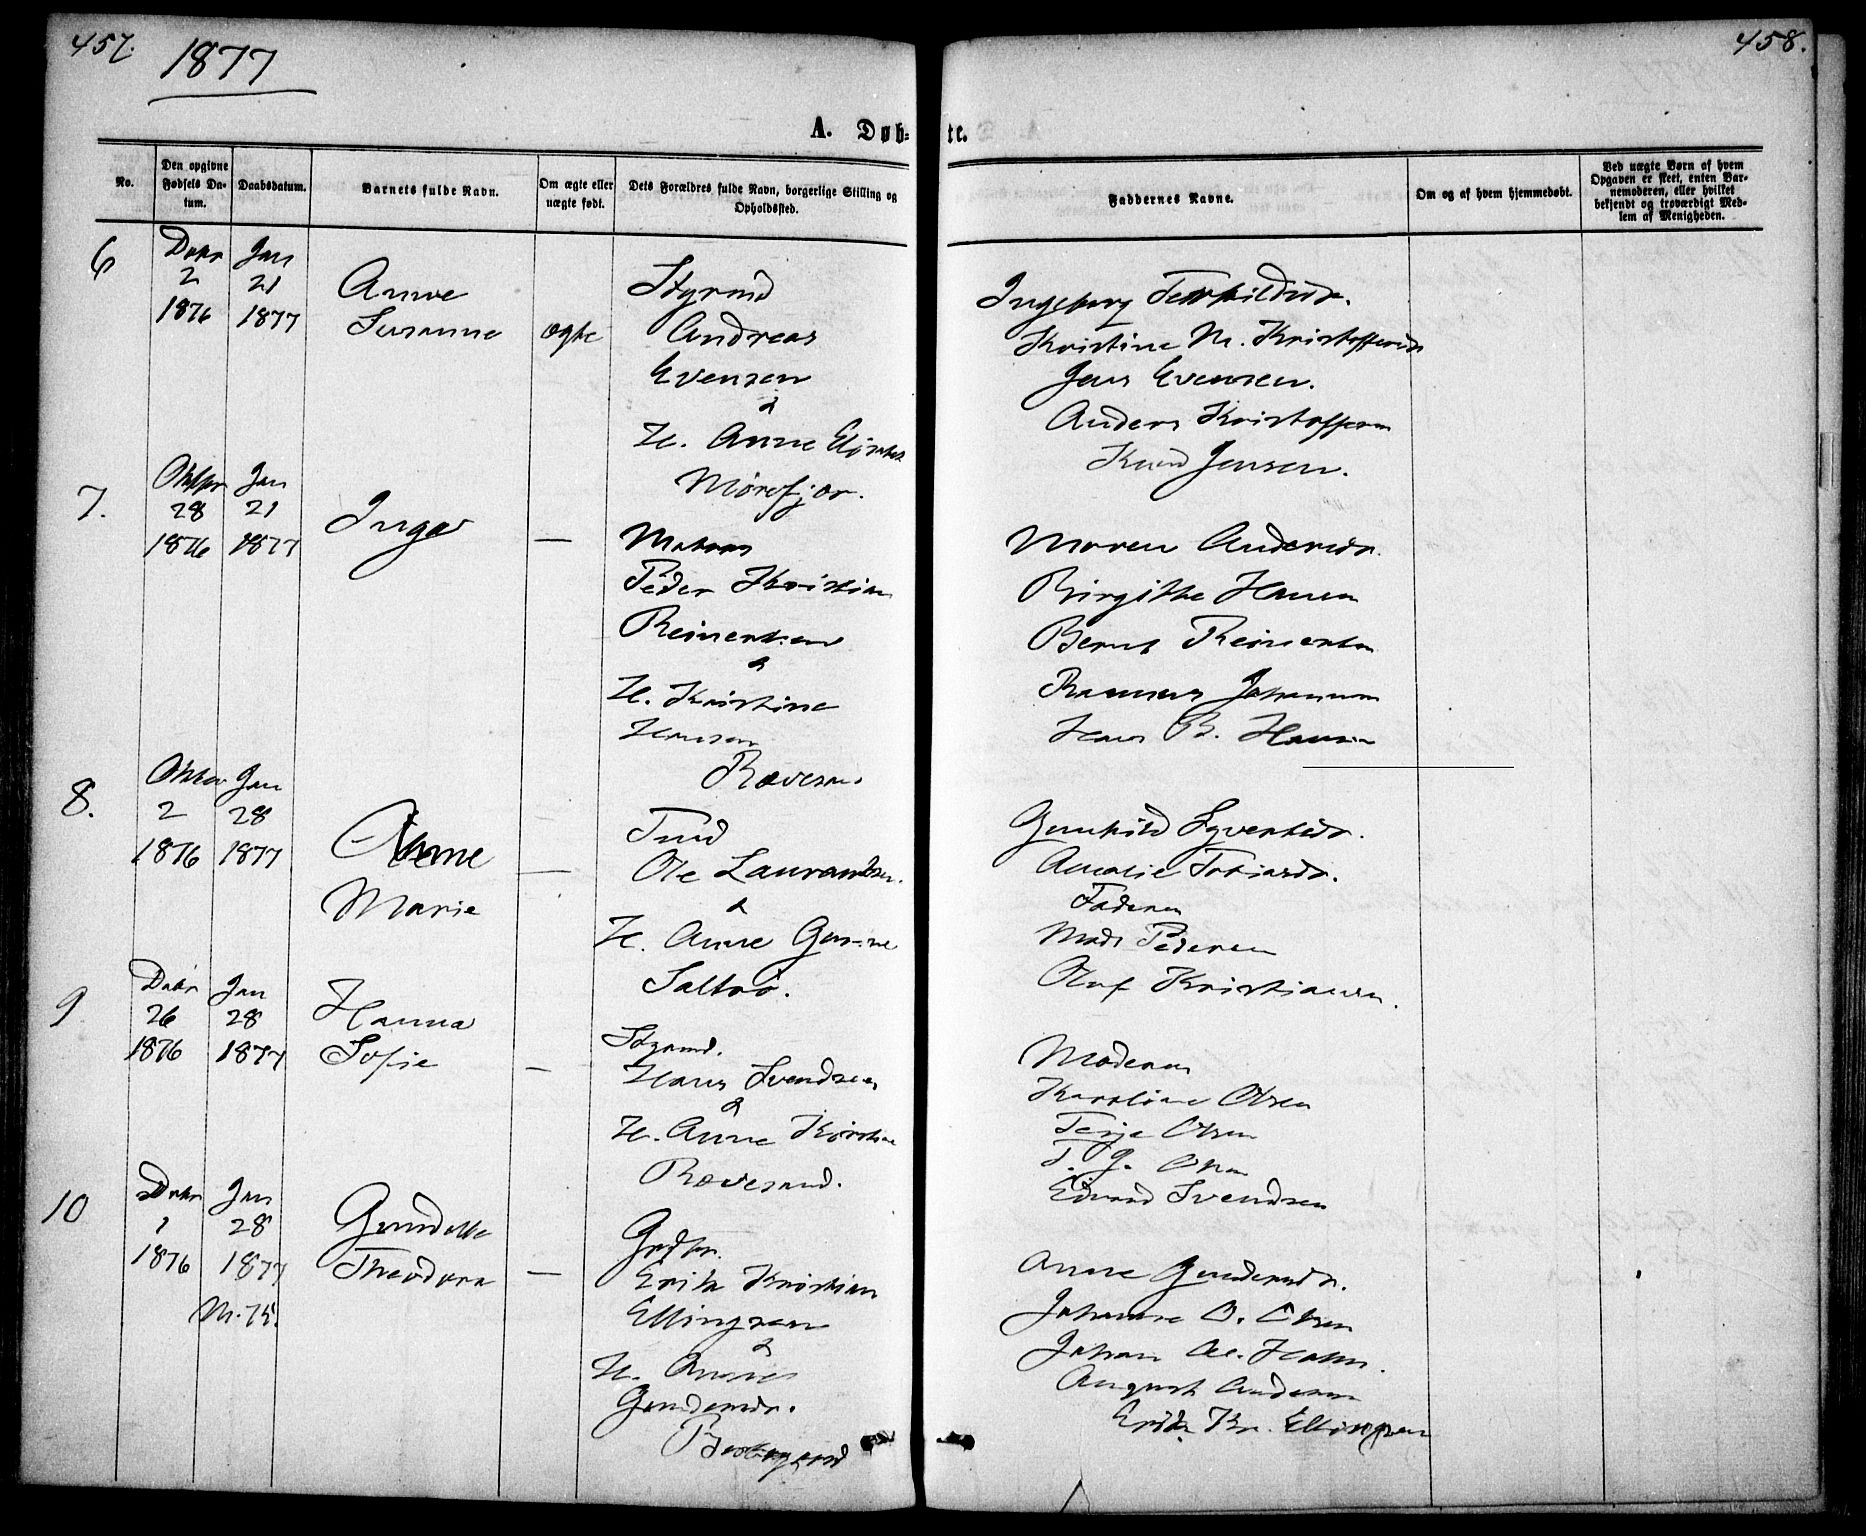 457.
1877
458.
A. Døb-
te.
No.
Den opgivne
Fødsels Da-
tum.
Daabsdatum.
Barnets fulde Navn.
Om ægte eller
uægte født.
Dets Forældres fulde Navn, borgerlige Stilling og
Opholdssted.
Faddernes Navne.
Om og af hvem hjemmedøbt.
Ved uægte Børn af hvem
Opgaven er skeet, enten Bar-
nemoderen, eller hvilket
bekjendt og troværdigt Med-
lem af Menigheden.
6
Debr
2
1876
Jan
21
1877
Anne
Susanne
ægte
Styrmd
Andreas
Evensen
&
H. Anne
Mørefjær.
Ingeborg
Kristine M.
Jens Evensen.
Anders
Knud Jensen.
7.
28
1876
Jan
21
1877
Inga
—
Matros
Peder Kristian
Reinertsen
&
H. Kristine
Hansen
Rævesand
Maren Andersdr.
Birgitte Hansen
Bernt Reinertsen
Rasmus Johannsen
Hans B. Hansen
8.
Oktbr
2
1876
Jan
28
1877
Anne
Marie
—
Tmd
Ole Laurantsen.
&
H. Anne
Saltrø.
Gunhild Syvertsdr.
Amalie Tobiasdr.
Faderen
Mads Pedersen
Oluf Kristiansen.
9
Debr
26
1876
Jan
28
1877
Hanna
Sofie
—
Styrmd.
Hans Svendsen
&
H. Anne Kirstine
Rævesand.
Moderen
Karoline Olsen
Terje Olsen
T. G. Olsen
Edvard Svendsen
10
Debr
1
1876
Jan
28
1877
M. 75.
Theodora
—
Erik Kristian
Ellingsen
&
H.
Gundersdr.
Anne Gundersdr.
Johanne O. Olsen
Johan
August Andersen
Erik Kr. Ellingsen